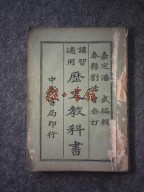 嘉定潘武編輯
泰縣劉參訂
講習適用
歷史教科書
中華書局印行